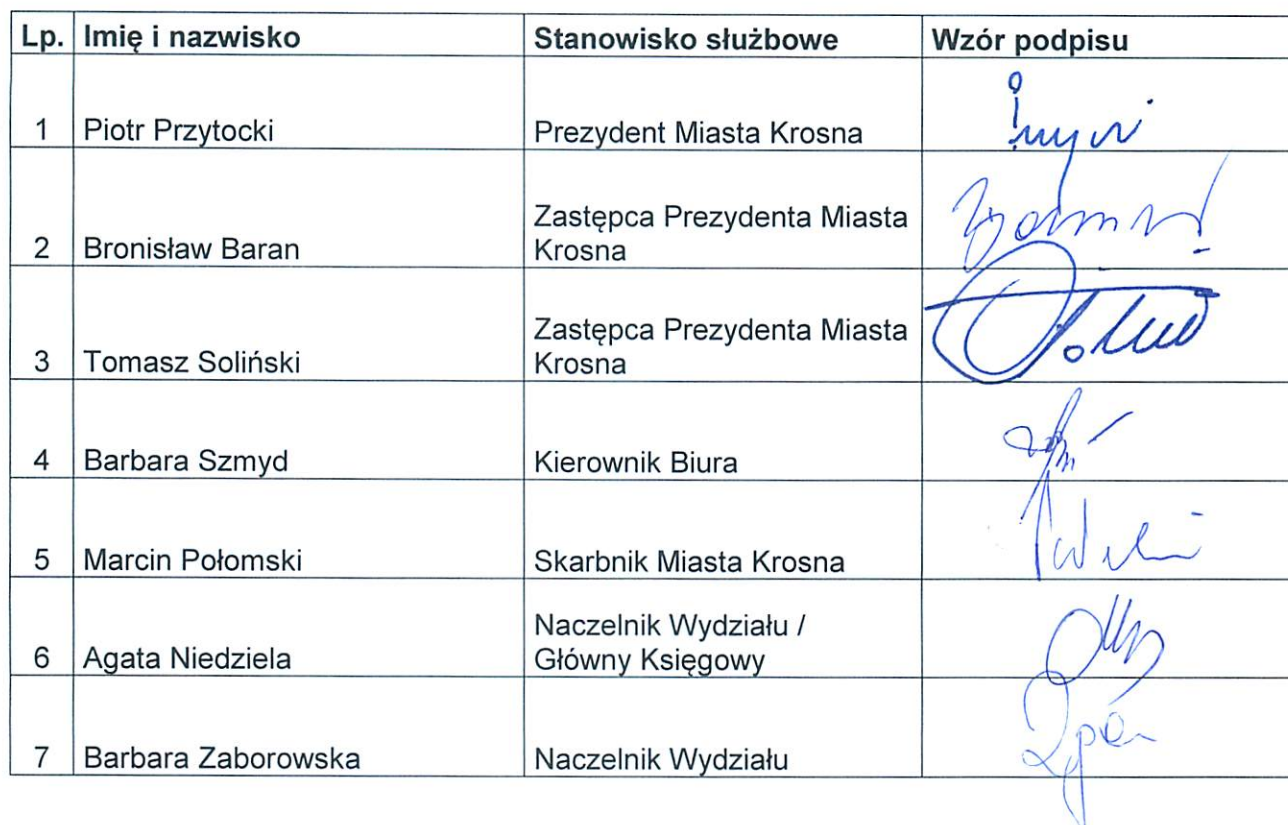 Lp. Imię i nazwisko Stanowisko służbowe Wzór podpisu
1 Piotr Przytocki Prezydent Miasta Krosna
2 Bronisław Baran Zastępca Prezydenta Miasta
Krosna
3 Tomasz Soliński Zastępca Prezydenta Miasta
Krosna
4 Barbara Szmyd Kierownik Biura
5 Marcin Połomski Skarbnik Miasta Krosna
6 Agata Niedziela Naczelnik Wydziału /
Główny Księgowy
7 Barbara Zaborowska Naczelnik Wydziału